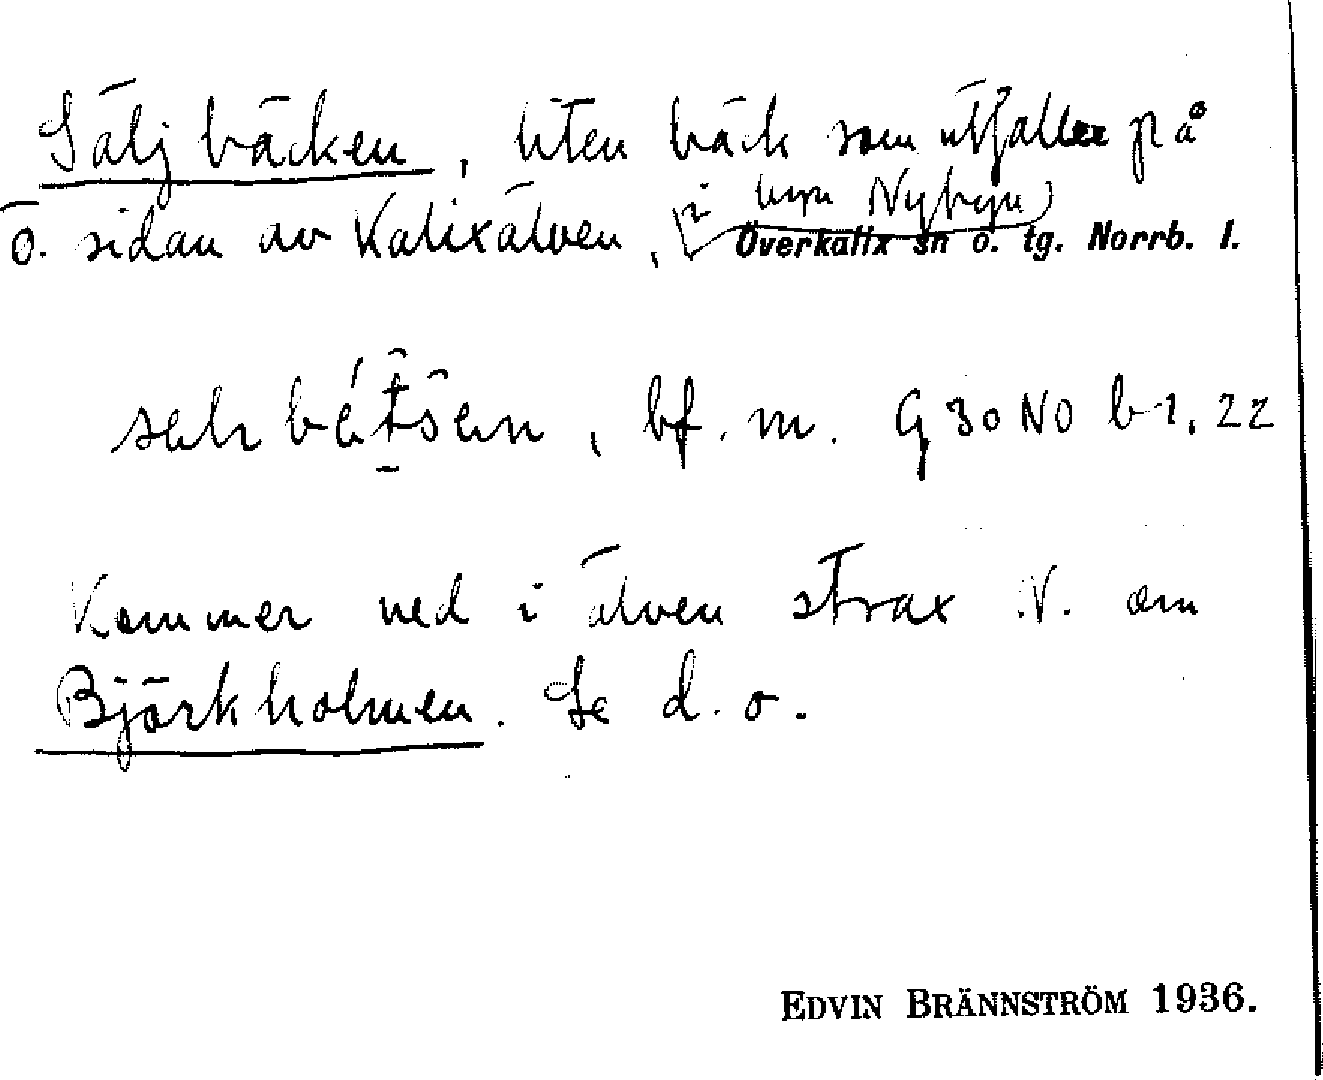 Säljbäcken, liten bäck som utfaller på
i byn Nybyn
ö. sidan av Kalixälven, Överkalix sn o. tg. Norrb. l.
bf. m. G 30 NO b 1, 22
Kommer ned i älven strax N. om
Björkholmen. Se d. o.
EDVIN BRÄNNSTRÖM 1936.